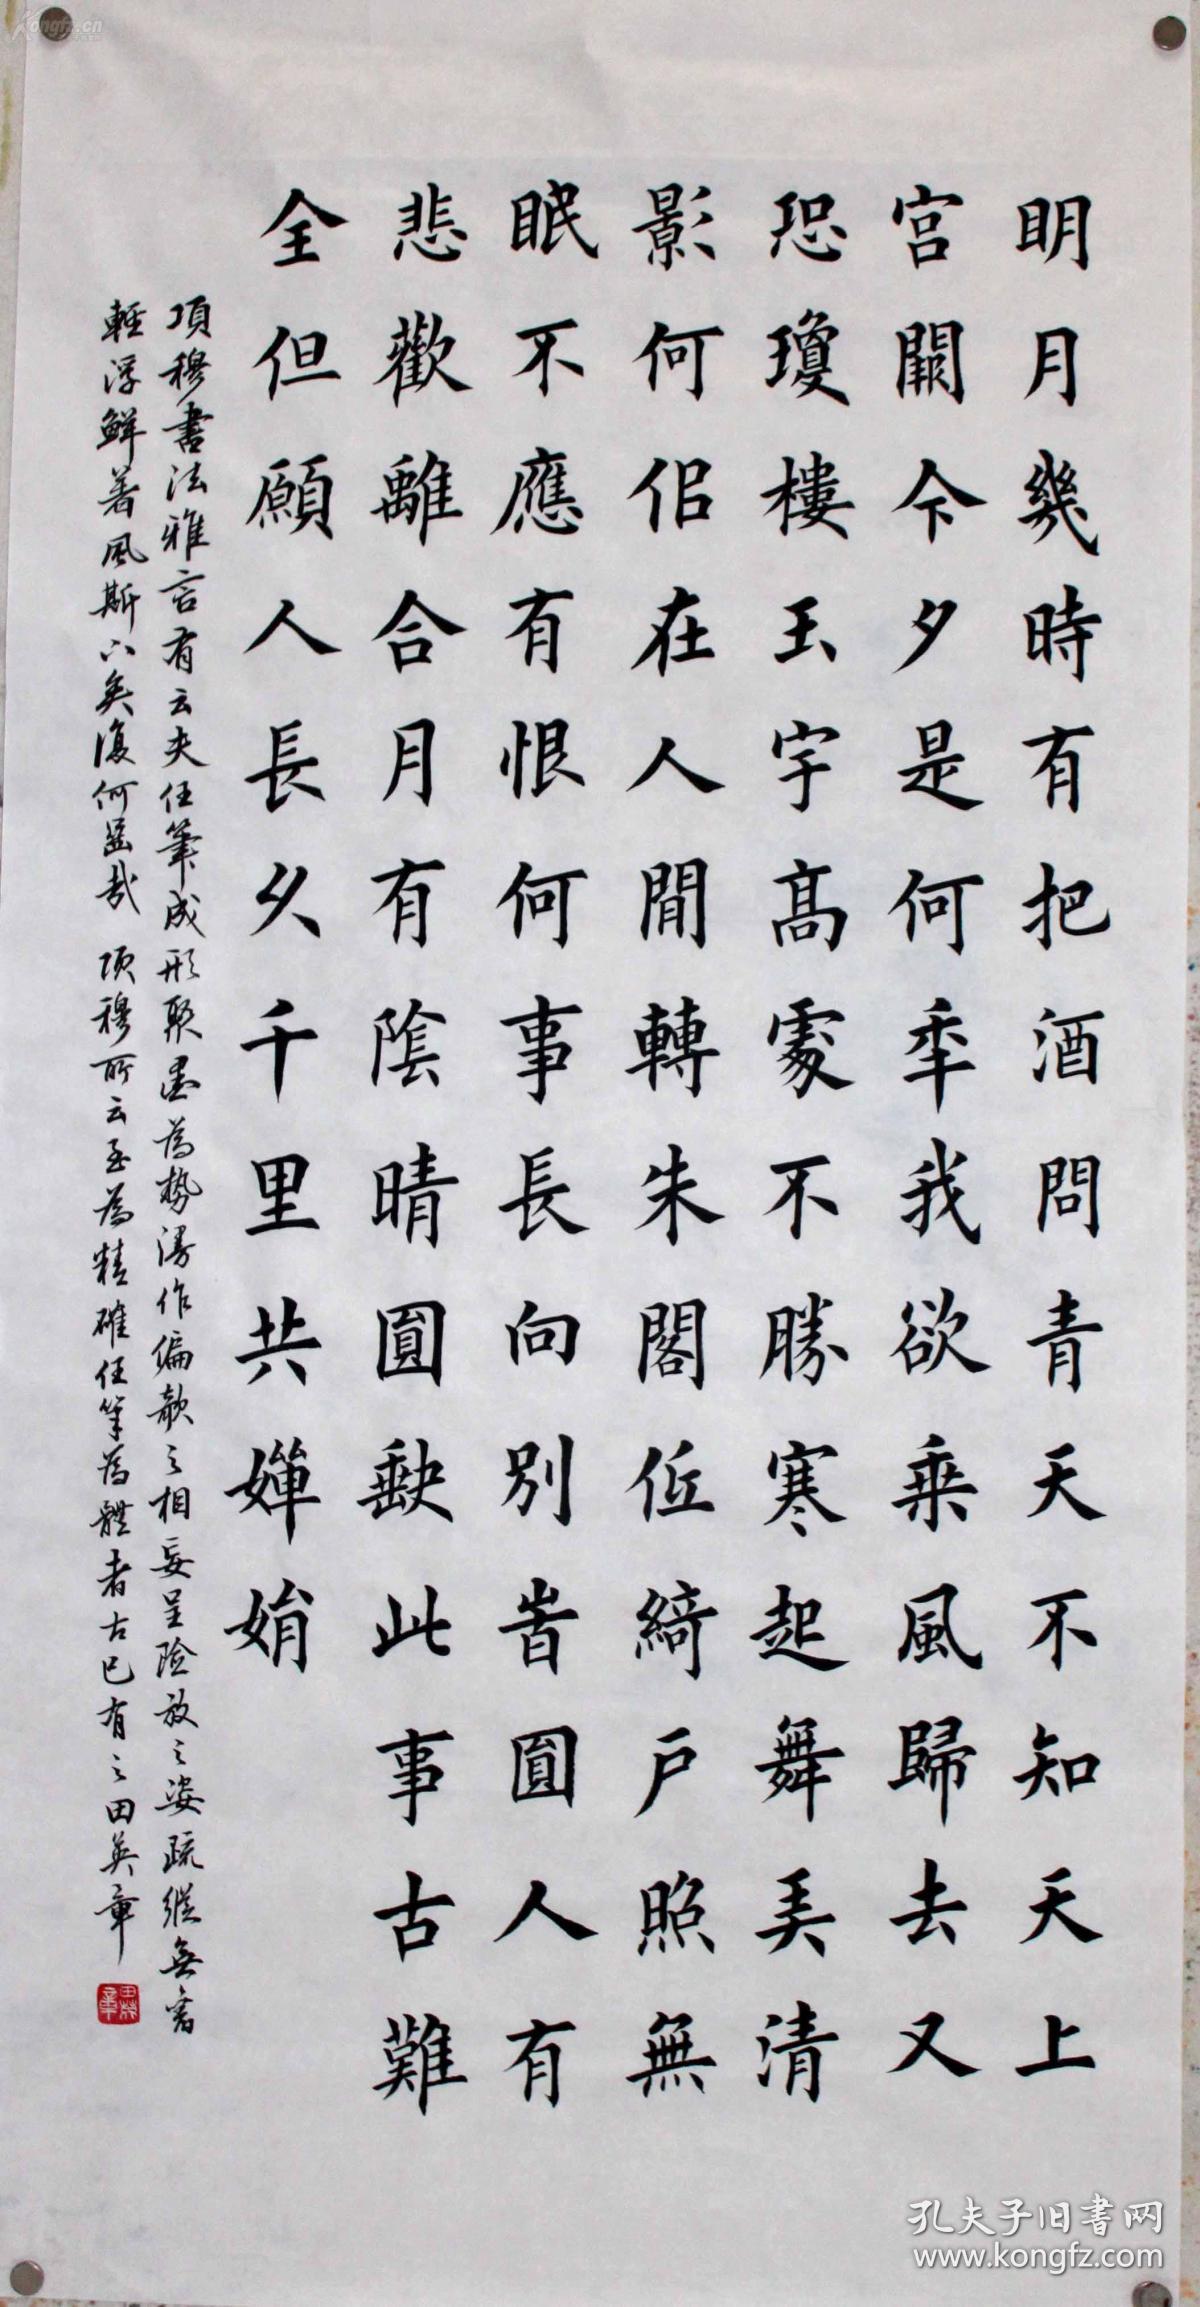 明月幾時有把酒問青天不知天上
宮闕今夕是何年我欲乘風歸去又
恐瓊樓玉宇髙處不勝寒起舞弄清
影何佀在人間轉朱閣低綺戶照無
眠不應有恨何事長向別旹圓人有
悲歡離合月有陰晴圓缺此事古難
全但願人長久千里共嬋娟
項穆書法雅言有云夫任筆成形聚墨為勢漫作偏欹之相妄呈險放之姿疏縱無
輕浮鮮著風斯下矣復何齒哉 項穆所云至為精確任筆為體者古已有之田英章
田英章
Kongfz.cn
孔夫子旧书网
www.kongfz.com